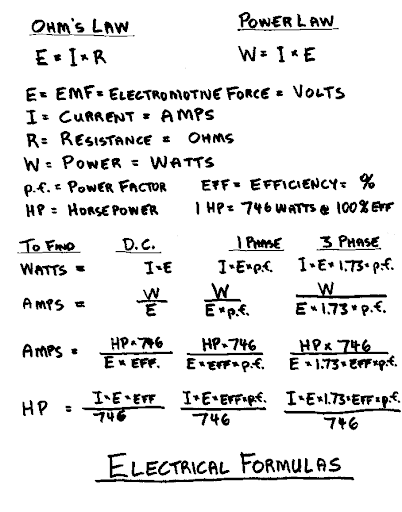 OHM'S LAW POWER LAW
E = I × R W = I × E
E = EMF = ELECTROMOTIVE FORCE = VOLTS
I = CURRENT = AMPS
R = RESISTANCE = OHMS
W = POWER = WATTS
p.f. = POWER FACTOR EFF = EFFICIENCY = %
HP = HORSEPOWER 1 HP = 746 WATTS @ 100% EFF
TO FIND D.C. 1 PHASE 3 PHASE
WATTS = I×E I×E×p.f. I×E×1.73×p.f.
AMPS = W/E W/E×p.f. W/E×1.73×p.f.
AMPS = HP×746/E×EFF. HP×746/E×EFF×p.f. HP×746/E×1.73×EFF×p.f.
HP = I×E×EFF/746 I×E×EFF×p.f./746 I×E×1.73×EFF×p.f./746
ELECTRICAL FORMULAS